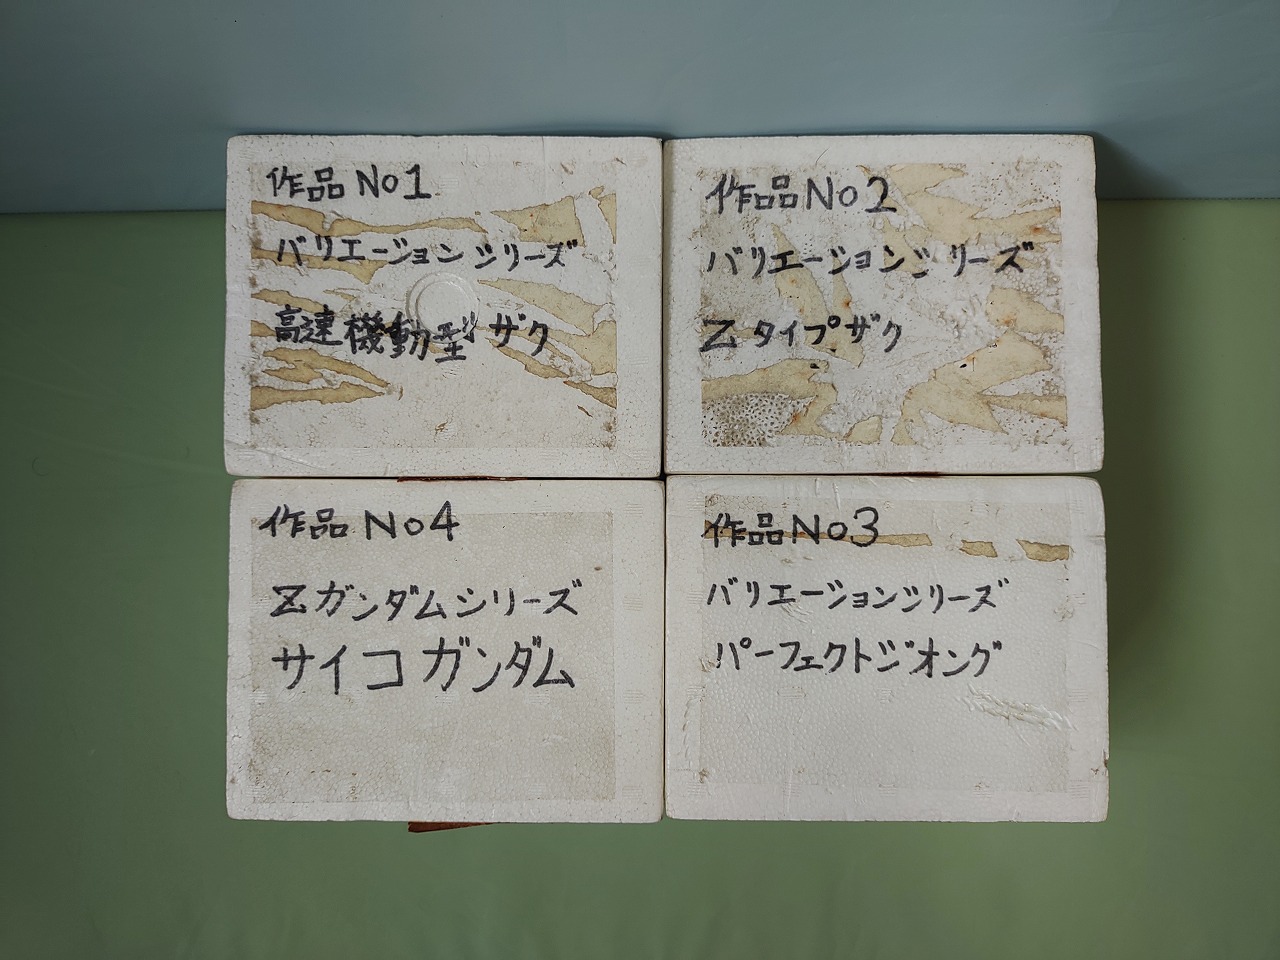 作品No1
バリエーションシリーズ
高速機動型ザク
作品No2
バリエーションシリーズ
Zタイプザク
作品No4
Zガンダムシリーズ
サイコガンダム
作品No3
バリエーションシリーズ
パーフェクトジオング